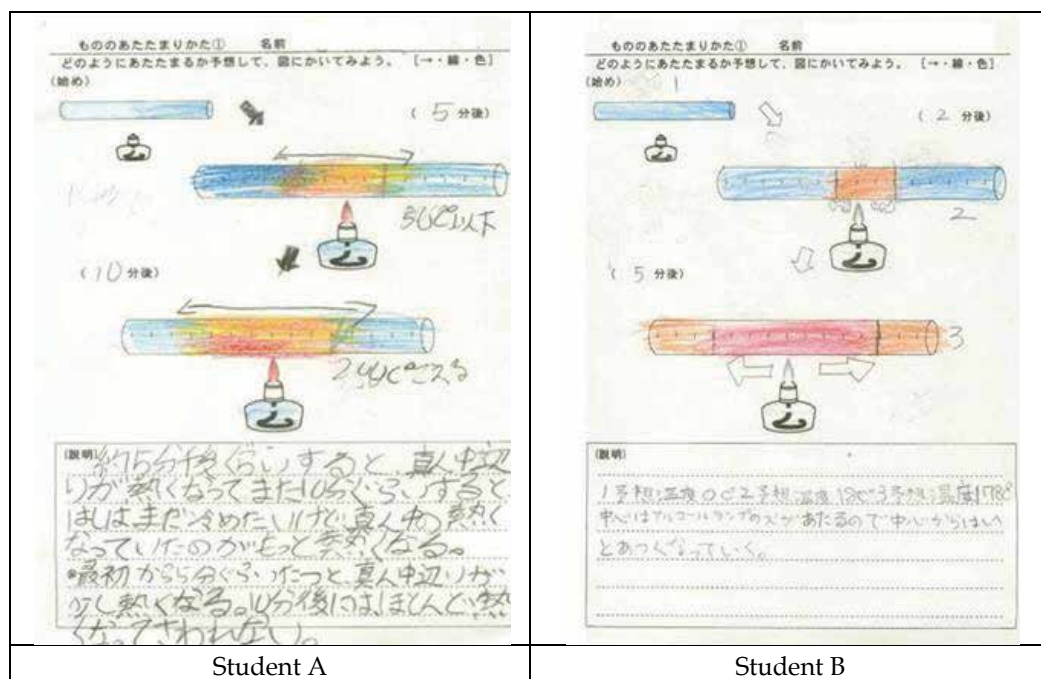 もののあたたまりかた① 名前
どのようにあたたまるか予想して、図にかいてみよう。 [→・線・色]
(始め)
(5 分後)
30℃以下
(10 分後)
200℃こえる
(説明) 約5分後ぐらいすると、真ん中辺
りが熱くなってまた10分ぐらいすると
はしはまだ冷めたいけど真ん中の熱く
なっていたのがもっと熱くなる。
•最初から5分ぐらいたつと真ん中辺りが
少し熱くなる。10分後にはほとんど熱
くなってさわれない。
Student A
もののあたたまりかた① 名前
どのようにあたたまるか予想して、図にかいてみよう。 [→・線・色]
(始め)
1
(2 分後)
2
(5 分後)
3
(説明)
1予想温度0℃2予想温度18℃3予想温度178℃
中心はアルコールランプの火があたるので中心からはしへ
とあつくなっていく。
Student B